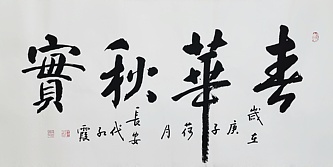 春華秋實
歲在
庚子
荷月
長安
代紅霞